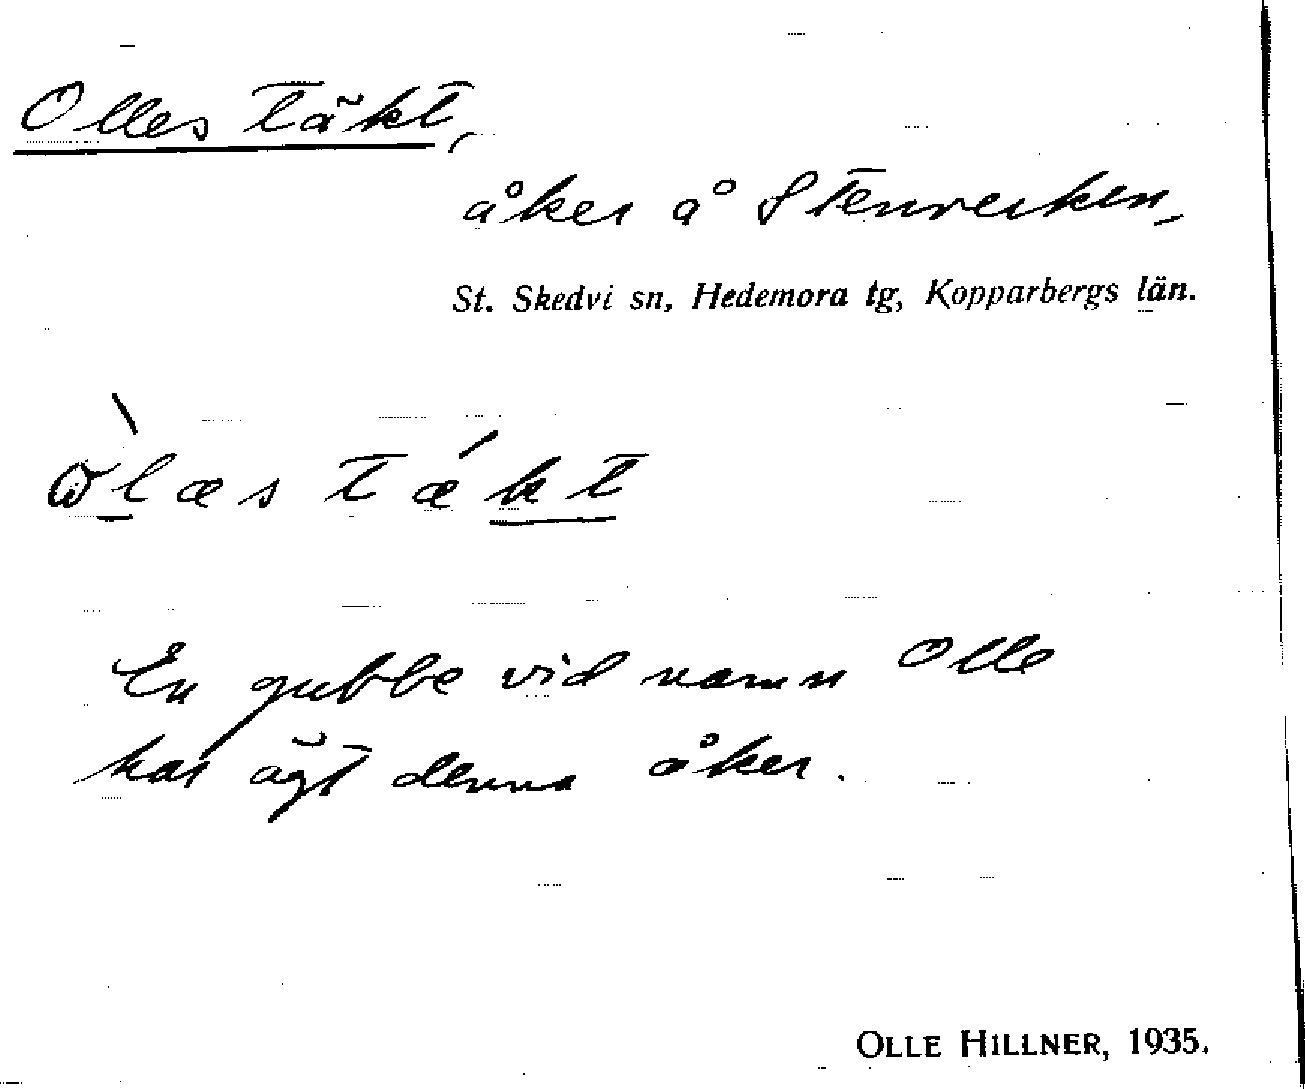 Olles täkt,
åker å Stenverken,
St. Skedvi sn, Hedemora tg, Kopparbergs län.
ɷ̀læs tǽkt
En gubbe vid namn Olle
har ägt denna åker.
OLLE HILLNER, 1935.